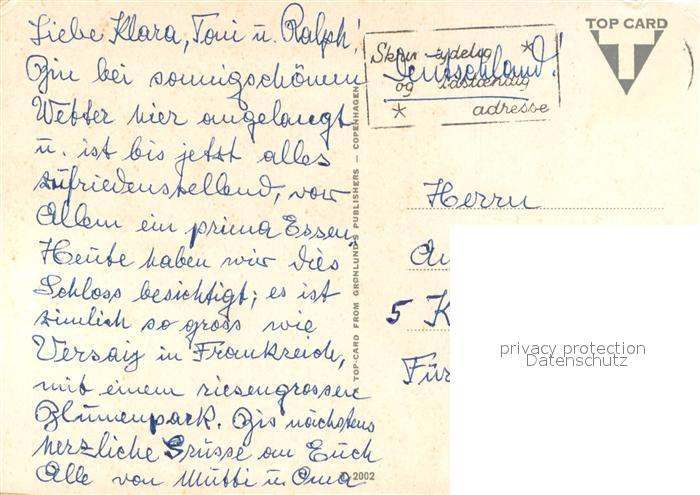 Liebe Klara, Toni u. Ralph!
Bin bei sonnigschönem
Wetter hier angelangt
u. ist bis jetzt alles
zufriedenstellend, vor
Allem ein prima Essen,
Heute haben wir dies
Schloss besichtigt; es ist
zimlich so gross wie
Versaig in Frankreich,
mit einem riesengrossen
Blumenpark. Bis nächstens
herzliche Grüsse an Euch
Alle von Mutti u. Oma
A TOP-CARD FROM GRØNLUND'S PUBLISHERS — COPENHAGEN
D 2002
TOP CARD
T
Skriv tydelig *
og fuldstændig
* adresse
Deutschland!
Herrn
5 K
Für
privacy protection
Datenschutz